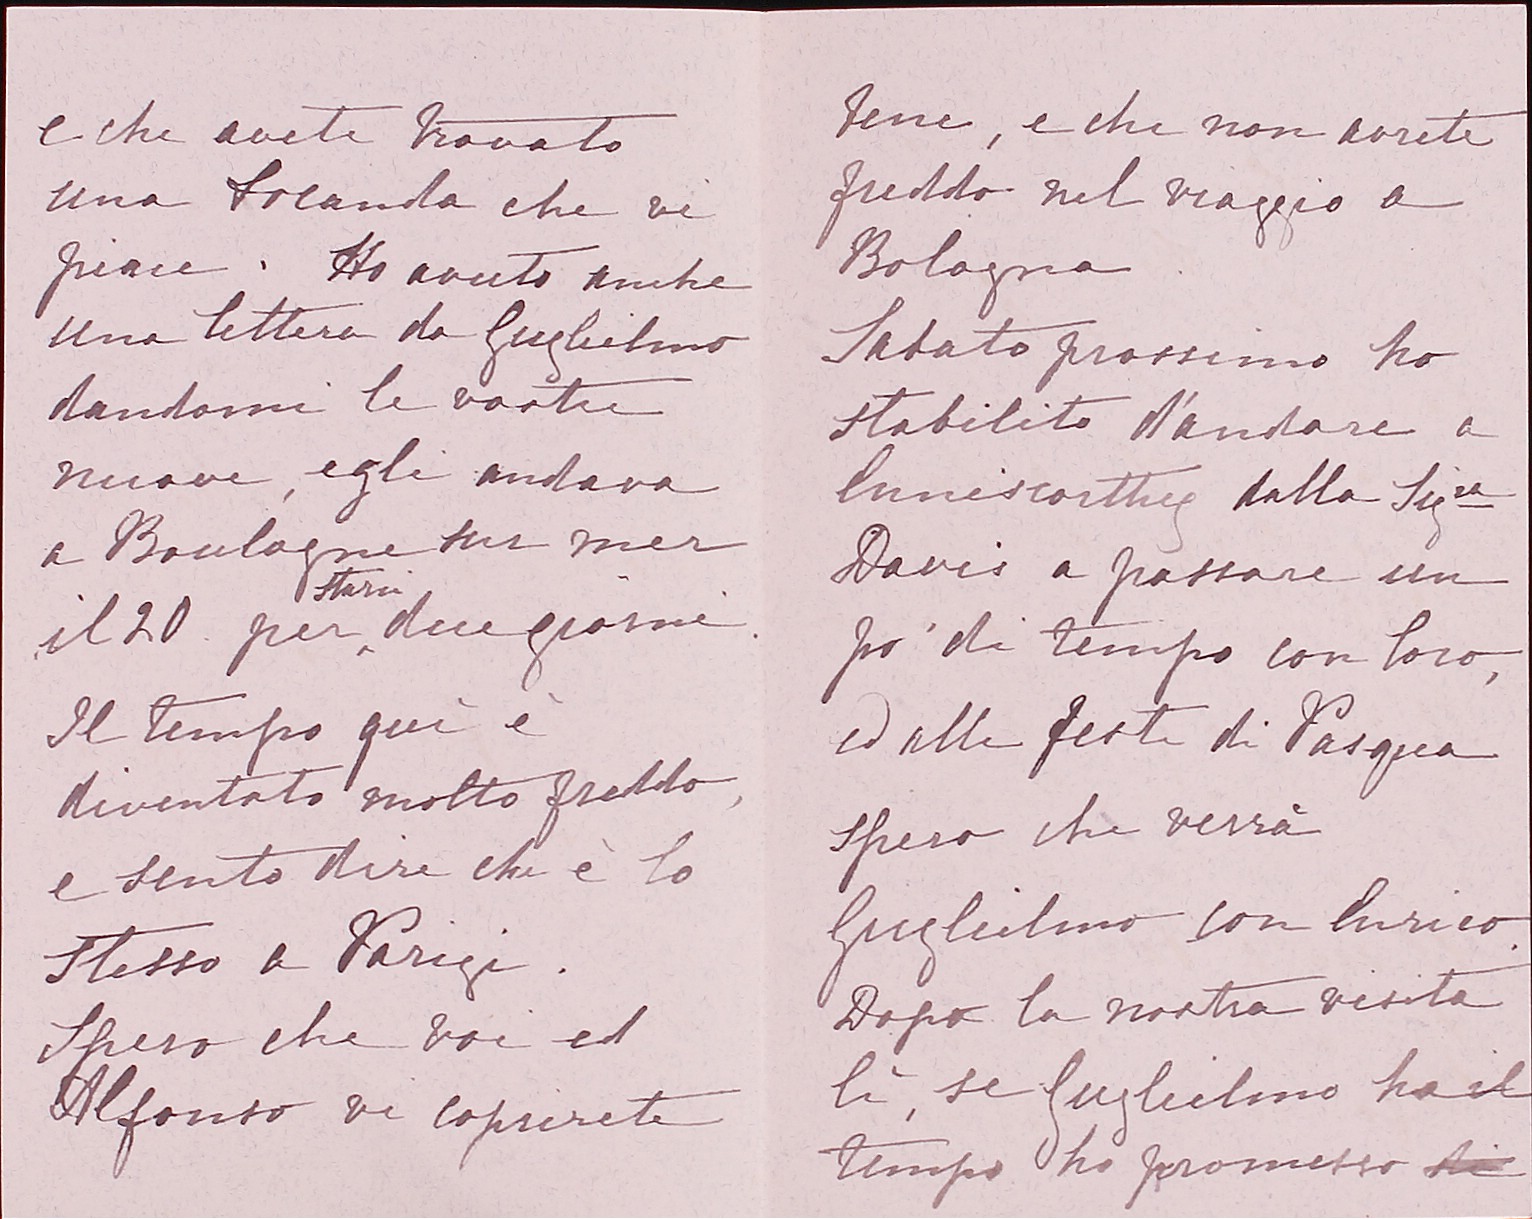 e che avete trovato
una Locanda che vi
piace. Ho avuto anche
una lettera da Guglielmo
dandomi le vostre
nuove, egli andava
a Boulogne sur mer
il 20 per starci due giorni.
Il tempo quì è
diventato molto freddo,
e sento dire che è lo
stesso a Parigi.
Spero che voi ed
Alfonso vi coprirete
bene, e che non avrete
freddo nel viaggio a
Bologna
Sabato prossimo ho
stabilito d'andare a
Enniscorthy dalla Sigra
Davis a passare un
po' di tempo con loro,
ed alle feste di Pasqua
spero che verrà
Guglielmo con Enrico.
Dopo la nostra visita
lì, se Guglielmo ha il
tempo ho promesso di